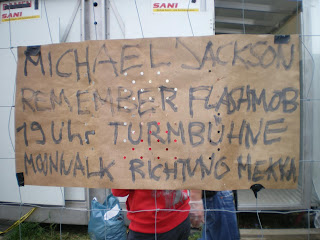 SANI
SANI
MICHAEL JACKSON
REMEMBER FLASHMOB
19 Uhr TURMBÜHNE
MOONWALK RICHTUNG MEKKA